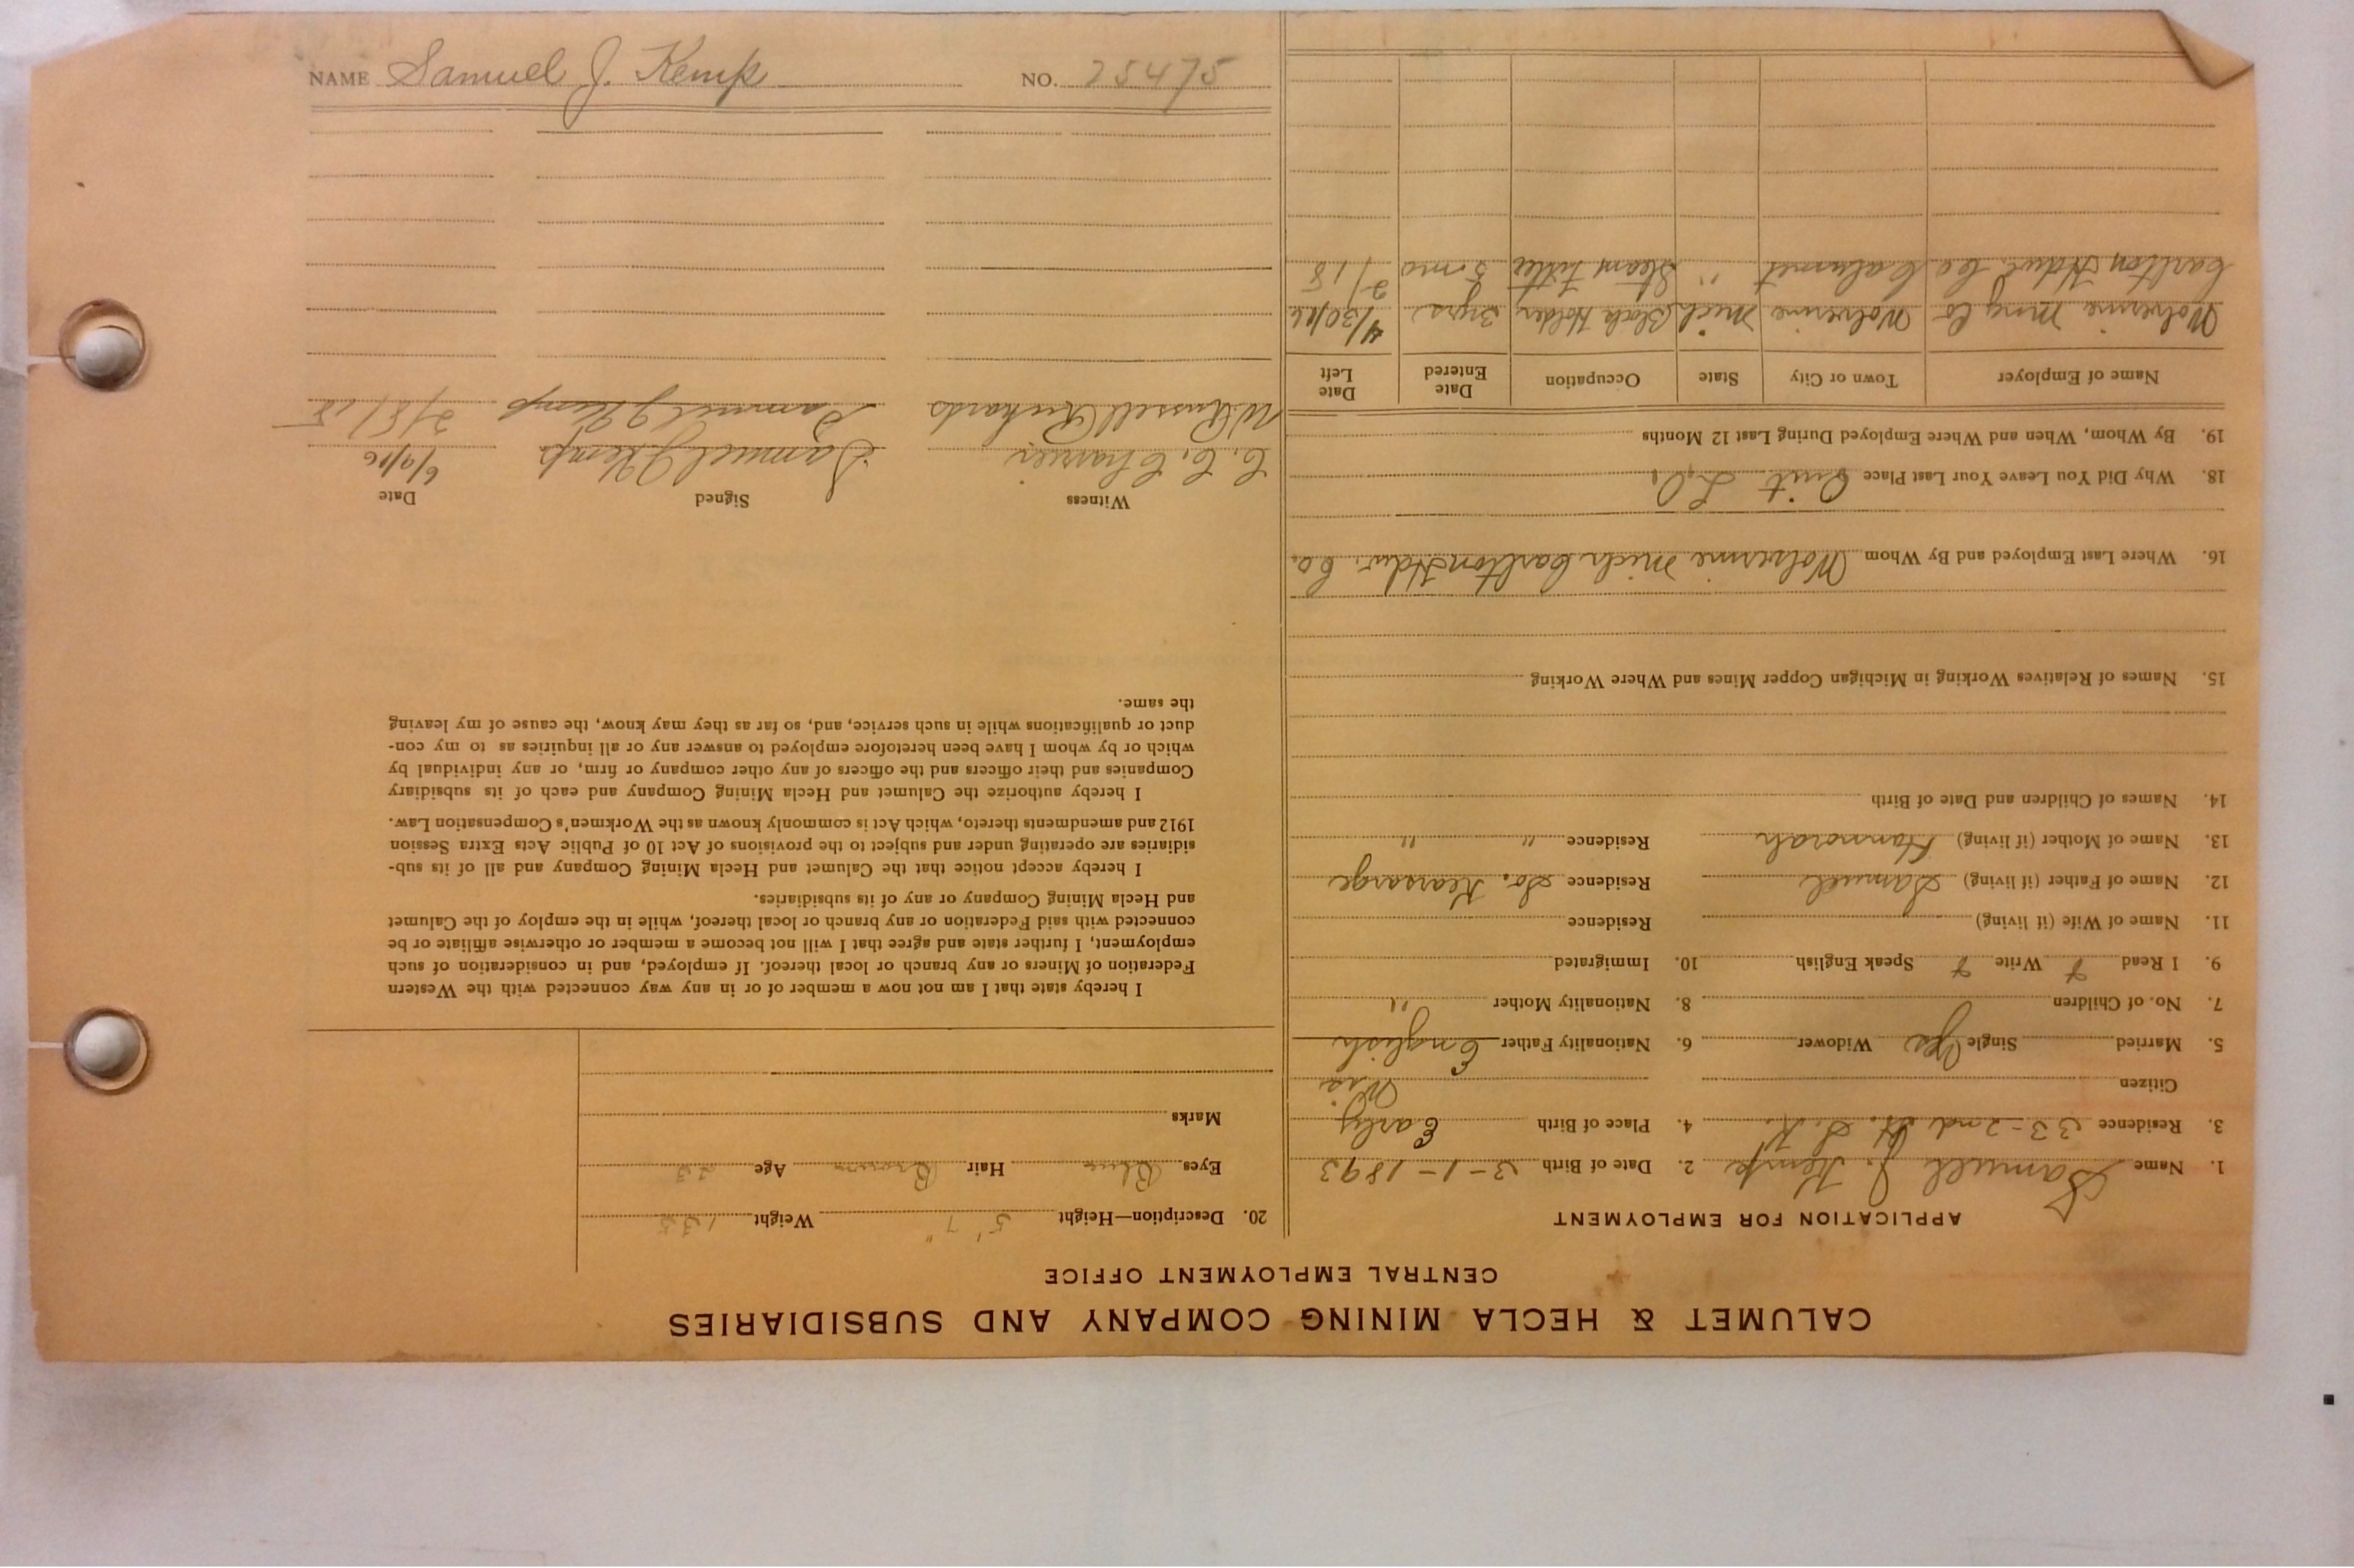 CALUMET & HECLA MINING COMPANY AND SUBSIDIARIES
CENTRAL EMPLOYMENT OFFICE
APPLICATION FOR EMPLOYMENT
1. Name Samuel J. Kemp 2. Date of Birth 3-1-1893
3. Residence 33-2nd St. S.K. 4. Place of Birth Early
Citizen Wis
5. Married Single Yes Widower 6. Nationality Father English
7. No. of Children 8. Nationality Mother "
9. I Read Write Speak English 10. Immigrated
11. Name of Wife (if living) Residence
12. Name of Father (if living) Samuel Residence So. Kearsarge
13. Name of Mother (if living) Hannorah Residence " "
14. Names of Children and Date of Birth
15. Names of Relatives Working in Michigan Copper Mines and Where Working
16. Where Last Employed and By Whom Wolverine Mich Carlton Hdw. Co.
18. Why Did You Leave Your Last Place Quit
19. By Whom, When and Where Employed During Last 12 Months
Name of Employer Town or City State Occupation Date Entered Date Left
Wolverine Mng Co Wolverine Mich Block Holder 3 yrs 4/30/16
Carlton Hdwe. Co Calumet " Steam Fitter 5 mo 2/18
20. Description—Height 5' 7" Weight 135
Eyes Blue Hair Brown Age 23
Marks
I hereby state that I am not now a member of or in any way connected with the Western
Federation of Miners or any branch or local thereof. If employed, and in consideration of such
employment, I further state and agree that I will not become a member or otherwise affiliate or be
connected with said Federation or any branch or local thereof, while in the employ of the Calumet
and Hecla Mining Company or any of its subsidiaries.
I hereby accept notice that the Calumet and Hecla Mining Company and all of its sub-
sidiaries are operating under and subject to the provisions of Act 10 of Public Acts Extra Session
1912 and amendments thereto, which Act is commonly known as the Workmen's Compensation Law.
I hereby authorize the Calumet and Hecla Mining Company and each of its subsidiary
Companies and their officers and the officers of any other company or firm, or any individual by
which or by whom I have been heretofore employed to answer any or all inquiries as to my con-
duct or qualifications while in such service, and, so far as they may know, the cause of my leaving
the same.
Witness Signed Date
C. C. Samuel J. Kemp 6/9/16
W. Russell Richards Samuel J Kemp 2/8/18
NAME Samuel J. Kemp NO. 25475